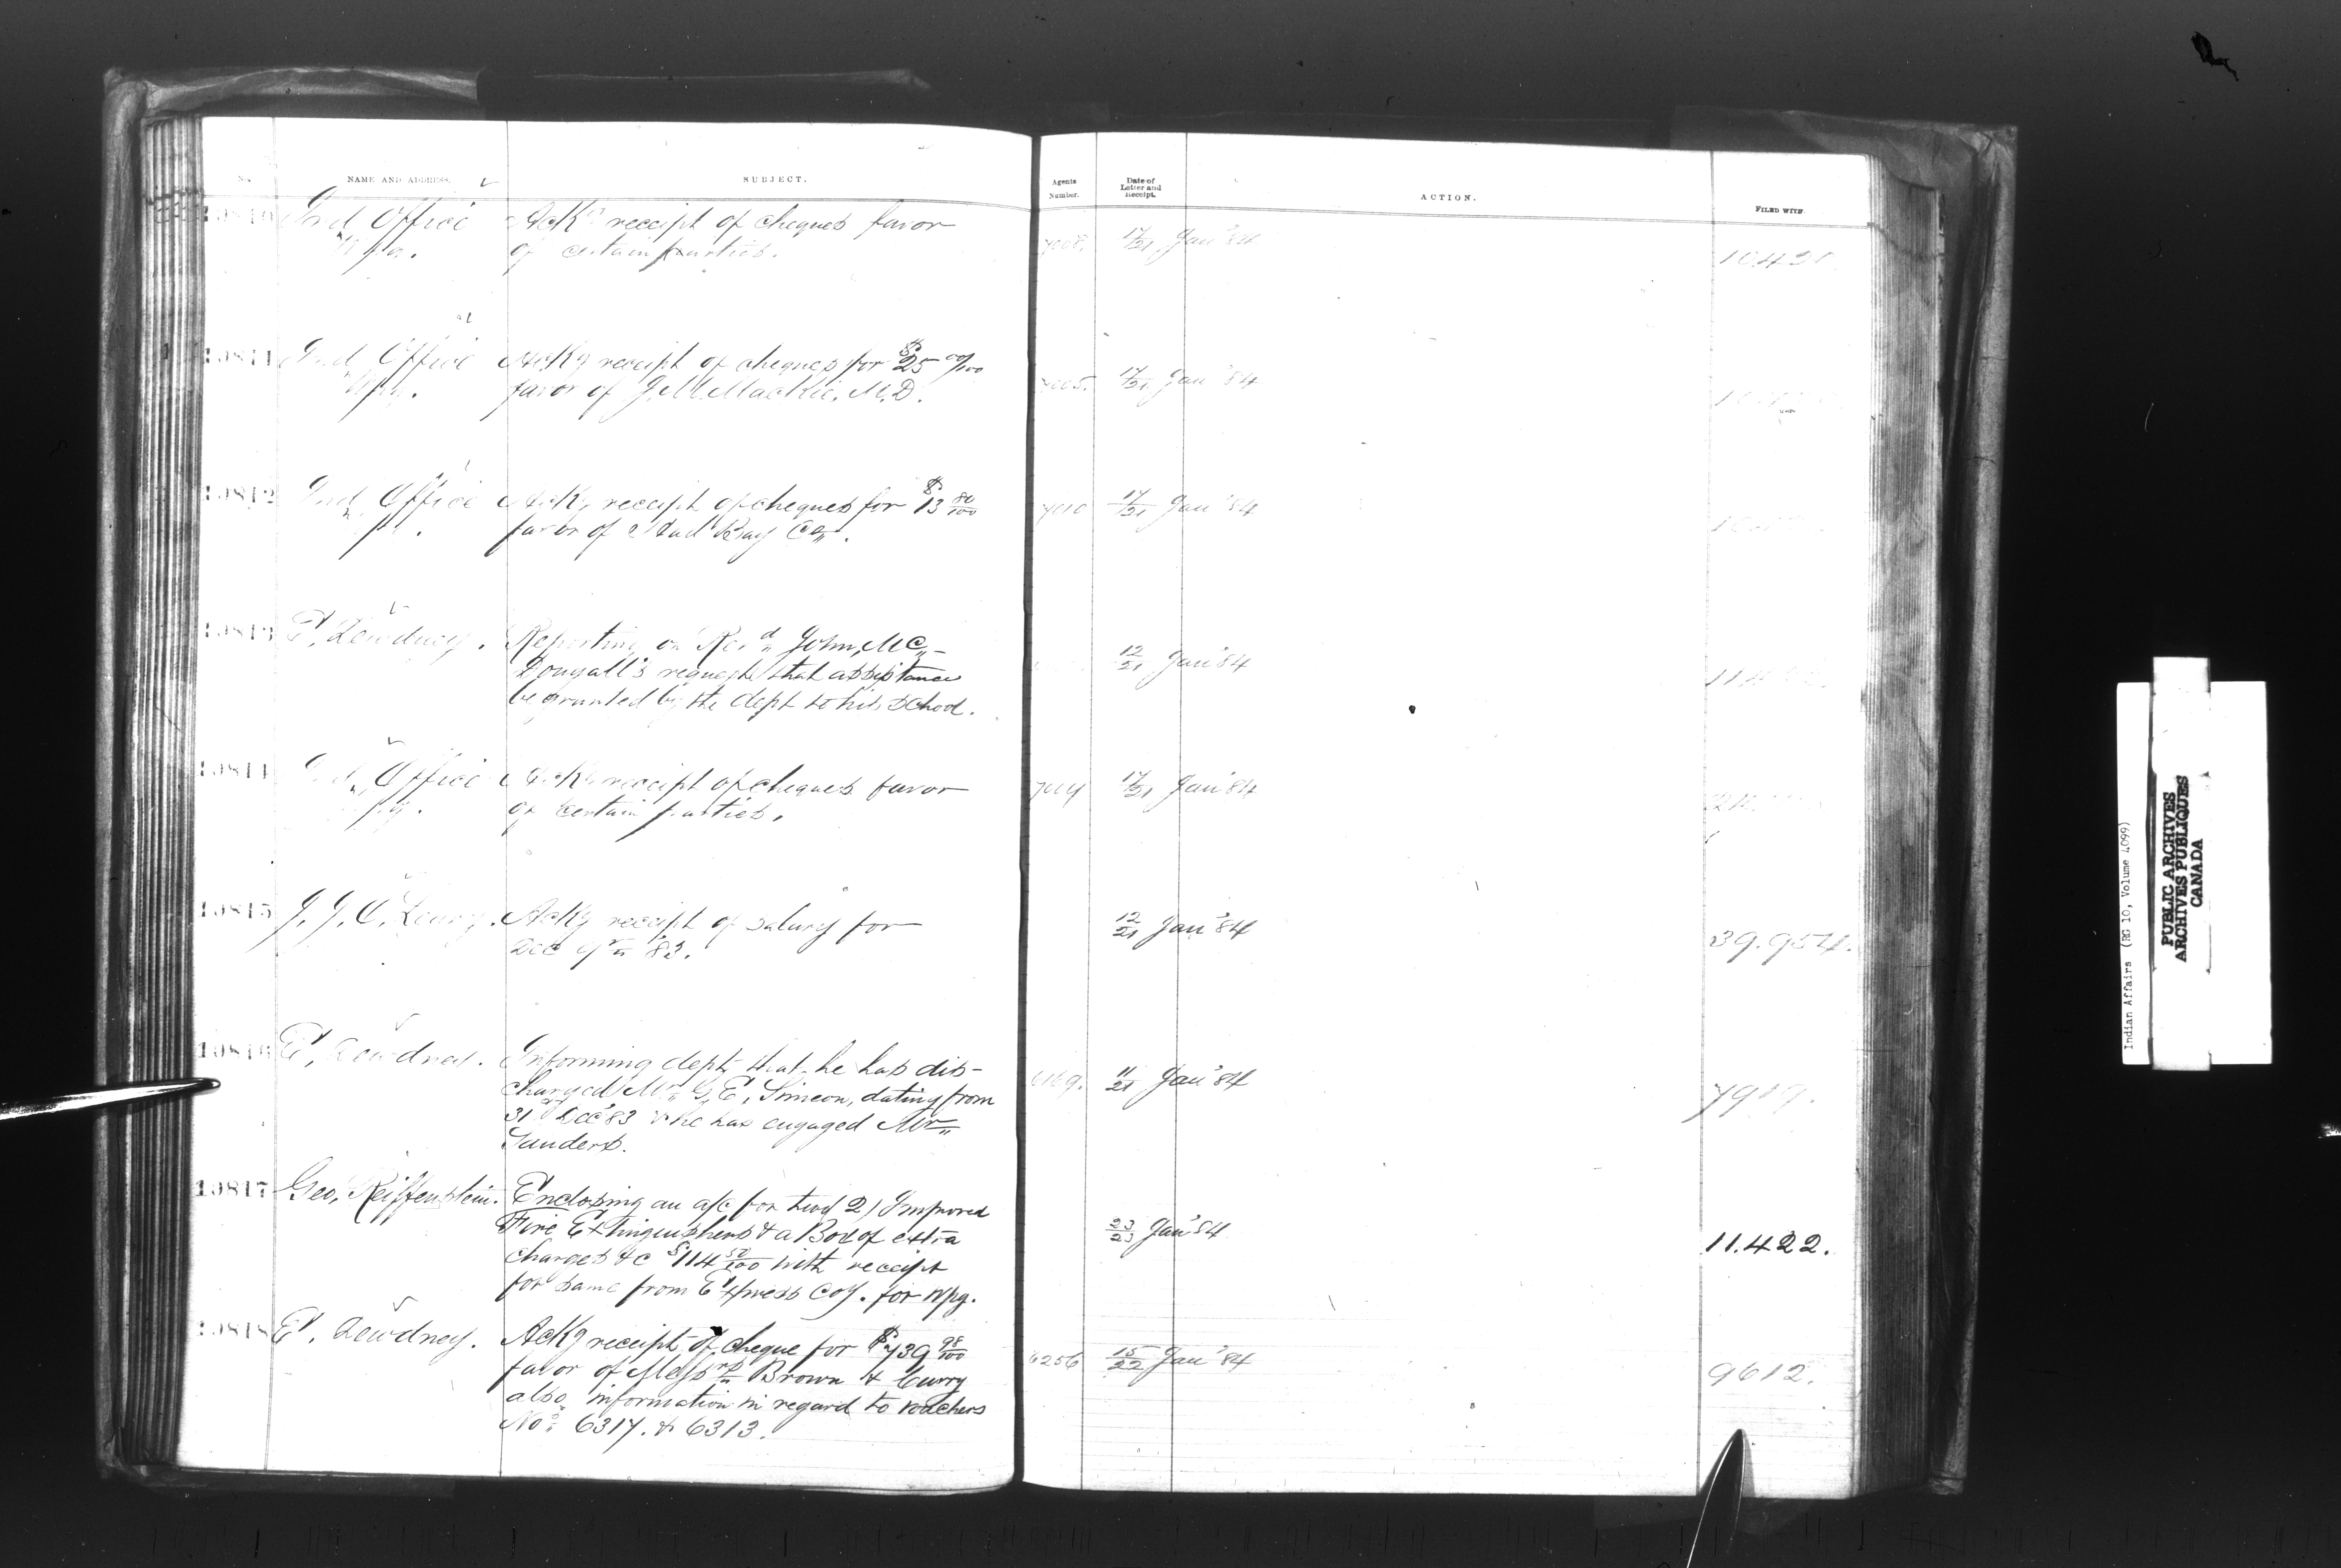 No. NAME AND ADDRESS. SUBJECT. Agents Number. Date of Letter and Receipt. ACTION. FILED WITH
19810 Ind Office Ackg receipt of cheques favor 7008. 17/21 Jan'84
Wpg. of certain parties. 10420
19811 Ind Office Ackg receipt of cheques for $25 00/100 7005. 17/21 Jan'84
Wpg. favor of J. M. MacKie, M.D.
19812 Ind Office Ackg receipt of cheques for $13 80/100 7010 17/21 Jan'84
favor of Hud Bay Co.
19813 E. Dewdney. Reporting on Revd John Mc- 12/21 Jan'84
Dougall's request that assistance
be granted by the dept to his school.
19814 Ind Office Ackg receipt of cheques favor 7014 17/21 Jan'84
Wpg. of certain parties.
19815 J. J. C. Ackg receipt of salary for 12/21 Jan'84
Dec '83. 39.954.
19816 E. Dewdney. Informing dept that he has dis- 6169. 11/21 Jan'84
charged Mr G. E. Simeon, dating from
31 Dec '83 & he has engaged Mr
Sanders.
19817 Geo. Reiffenstein. Enclosing an a/c for two (2) Improved
Fire Extinguishers & a Box of extra 23/23 Jan'84
charges &c $114 50/100 with receipt 11.422.
for same from Express Coy. for Wpg.
19818 E. Dewdney. Ackg receipt of cheque for $739 98/100 6256 15/22 Jan'84
favor of Messrs Brown & Curry 9612.
also information in regard to vouchers
Nos 6317. & 6313.
Indian Affairs (RG 10, Volume 4099)
PUBLIC ARCHIVES
ARCHIVES PUBLIQUES
CANADA